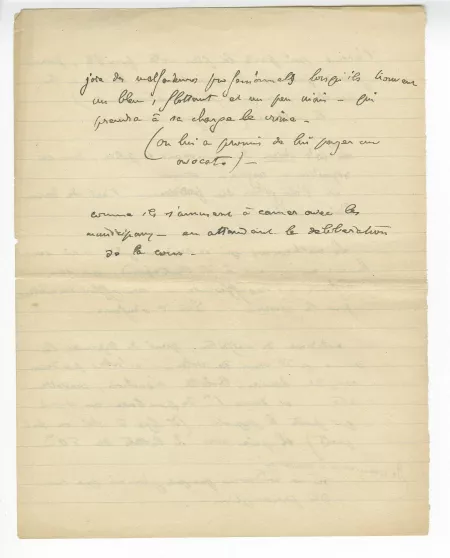 joie des malfaiteurs professionnels lorsqu'ils trouvent
un bleu, flattant et un peu niais - qui
prendra à sa charge le crime -
(on lui a promis de lui payer un
avocat.) -
comme ils s'amusent à causer avec les
municipaux - en attendant la délibération
de la cour -